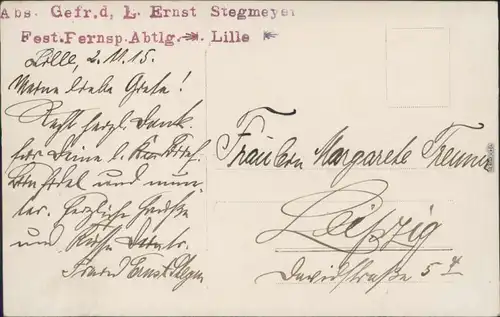 Abs. Gefr.d. L. Ernst Stegmeyer
Fest.Fernsp.Abtlg. Lille
Lille, 2.11.15.
Meine liebe Grete!
Recht herzl. Dank
für Deine l.
und mun-
ter. Herzliche Grüße
und Küsse
Ernst
Fräulein Margarete
Leipzig
Davidstraße 5